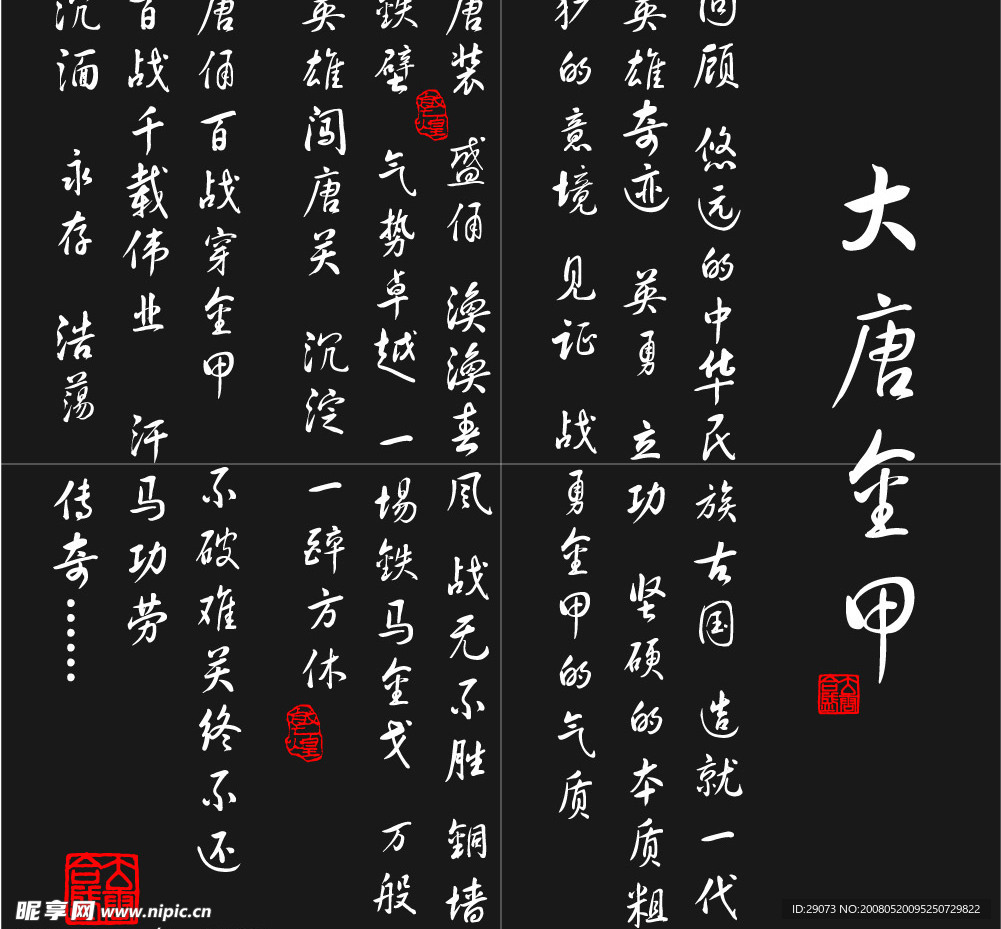 大唐金甲
回顾 悠远的中华民族古国 造就一代
英雄奇迹 英勇 立功 坚硕的本质粗
犷的意境 见证 战勇金甲的气质
唐装 盛俑 涣涣春风 战无不胜 銅墙
鉄壁 气势卓越 一場鉄马金戈 万般
英雄闯唐关 沉淀 一醉方休
唐俑百战穿金甲 不破难关终不还
百战千载伟业 汗马功劳
沉湎 永存 浩荡 传奇……
昵享网 www.nipic.cn
ID:29073 NO:20080520095250729822